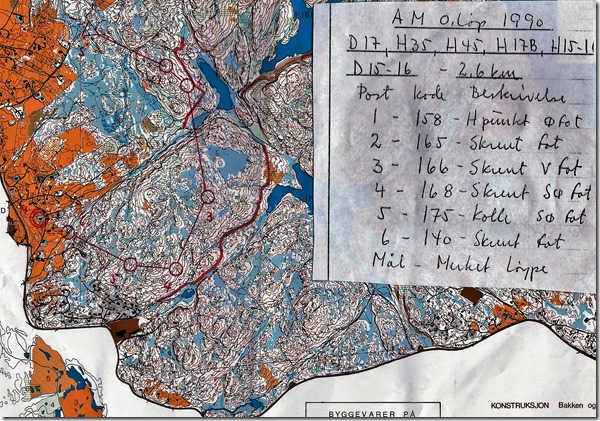 A M O.løp 1990
D17, H35, H45, H17B, H15-16
D15-16 - 2,6 km
Post kode Beskrivelse
1 - 158 - Hpunkt Ø fot
2 - 165 - Skrent fot
3 - 166 - Skrent V fot
4 - 168 - Skrent SØ fot
5 - 175 - Kolle SØ fot
6 - 140 - Skrent fot
Mål - Merket løype
D
3
4
BYGGEVARER PÅ
KONSTRUKSJON Bakken og